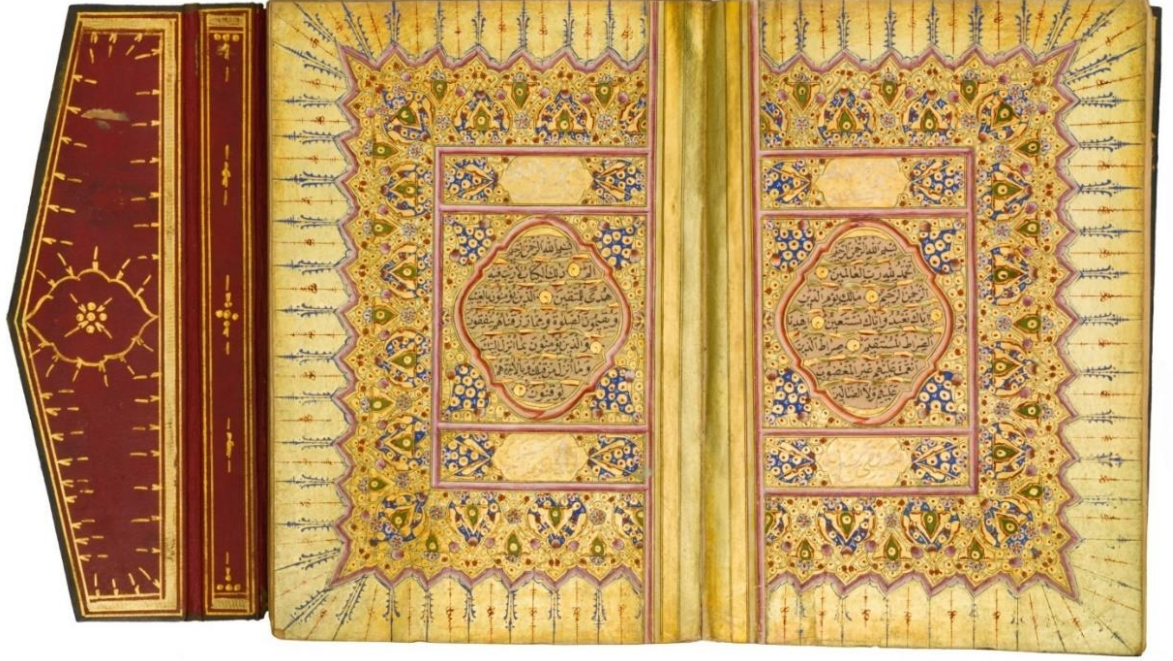 بسم الله الرحمن الرحيم
الحمد لله رب العالمين
الرحمن الرحيم مالك يوم الدين
اياك نعبد واياك نستعين اهدنا
الصراط المستقيم صراط الذين
انعمت عليهم غير المغضوب
عليهم ولا الضالين
بسم الله الرحمن الرحيم
الم ذلك الكتاب لا ريب فيه
هدى للمتقين الذين يؤمنون بالغيب
ويقيمون الصلوة ومما رزقناهم ينفقون
والذين يؤمنون بما انزل اليك
وما انزل من قبلك وبالاخرة هم
يوقنون